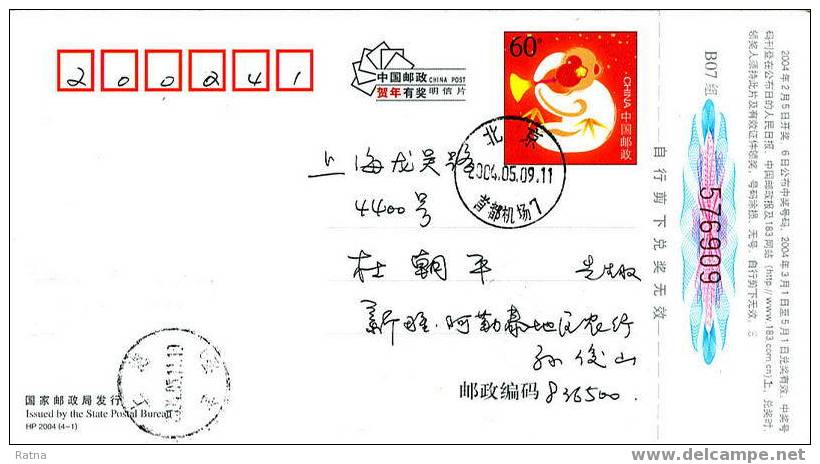 200241
中国邮政 CHINA POST
贺年有奖 明信片
60分
CHINA 中国邮政
北京
2004.05.09.11
首都机场7
上海龙吴路
4400号
杜朝平 先生收
新疆.阿勒泰地区农行
孙俊山
邮政编码 836500.
上海
2004.05.11.19
国家邮政局发行
Issued by the State Postal Bureau
HP 2004 (4-1)
自行剪下兑奖无效
B07组
576909
2004年2月5日开奖，6日公布中奖号码，2004年3月1日至5月1日兑奖有效，中奖号
码刊登在公布日的人民日报、中国邮政报及183网站 (http://www.183.com.cn)上，兑奖时，
领奖人须持此片及有效证件领奖，号码涂损、无号、自行剪下无效。
Ratna
www.delcampe.com